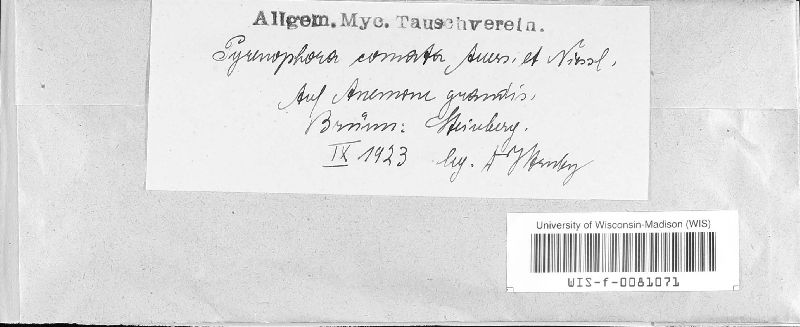 Allgem. Myc. Tauschverein.
Pyrenophora comata Auers. et Niessl.
Auf Anemone grandis.
Brünn: Steinberg.
IX 1923 leg.
University of Wisconsin-Madison (WIS)
WIS-f-0081071